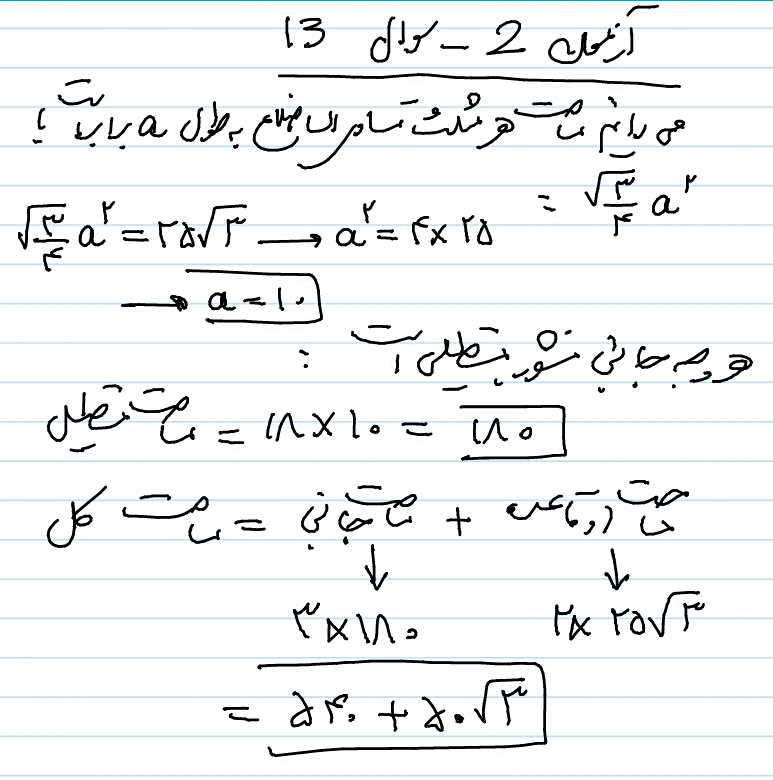 آزمون 2 - سوال 13
می دانیم مساحت هر مثلث متساوی الساضلاع به طول a برابر است با
= √۳/۴ a^۲
√۳/۴ a^۲ = ۲۵√۳ → a^۲ = ۴×۲۵
→ a = ۱۰
هر وجه جانبی منشور مستطیل است :
مساحت مستطیل = ۱۸×۱۰ = ۱۸۰
مساحت کل = مساحت جانبی + مساحت دو قاعده
↓ ↓
۳×۱۸۰ ۲×۲۵√۳
= ۵۴۰ + ۵۰√۳